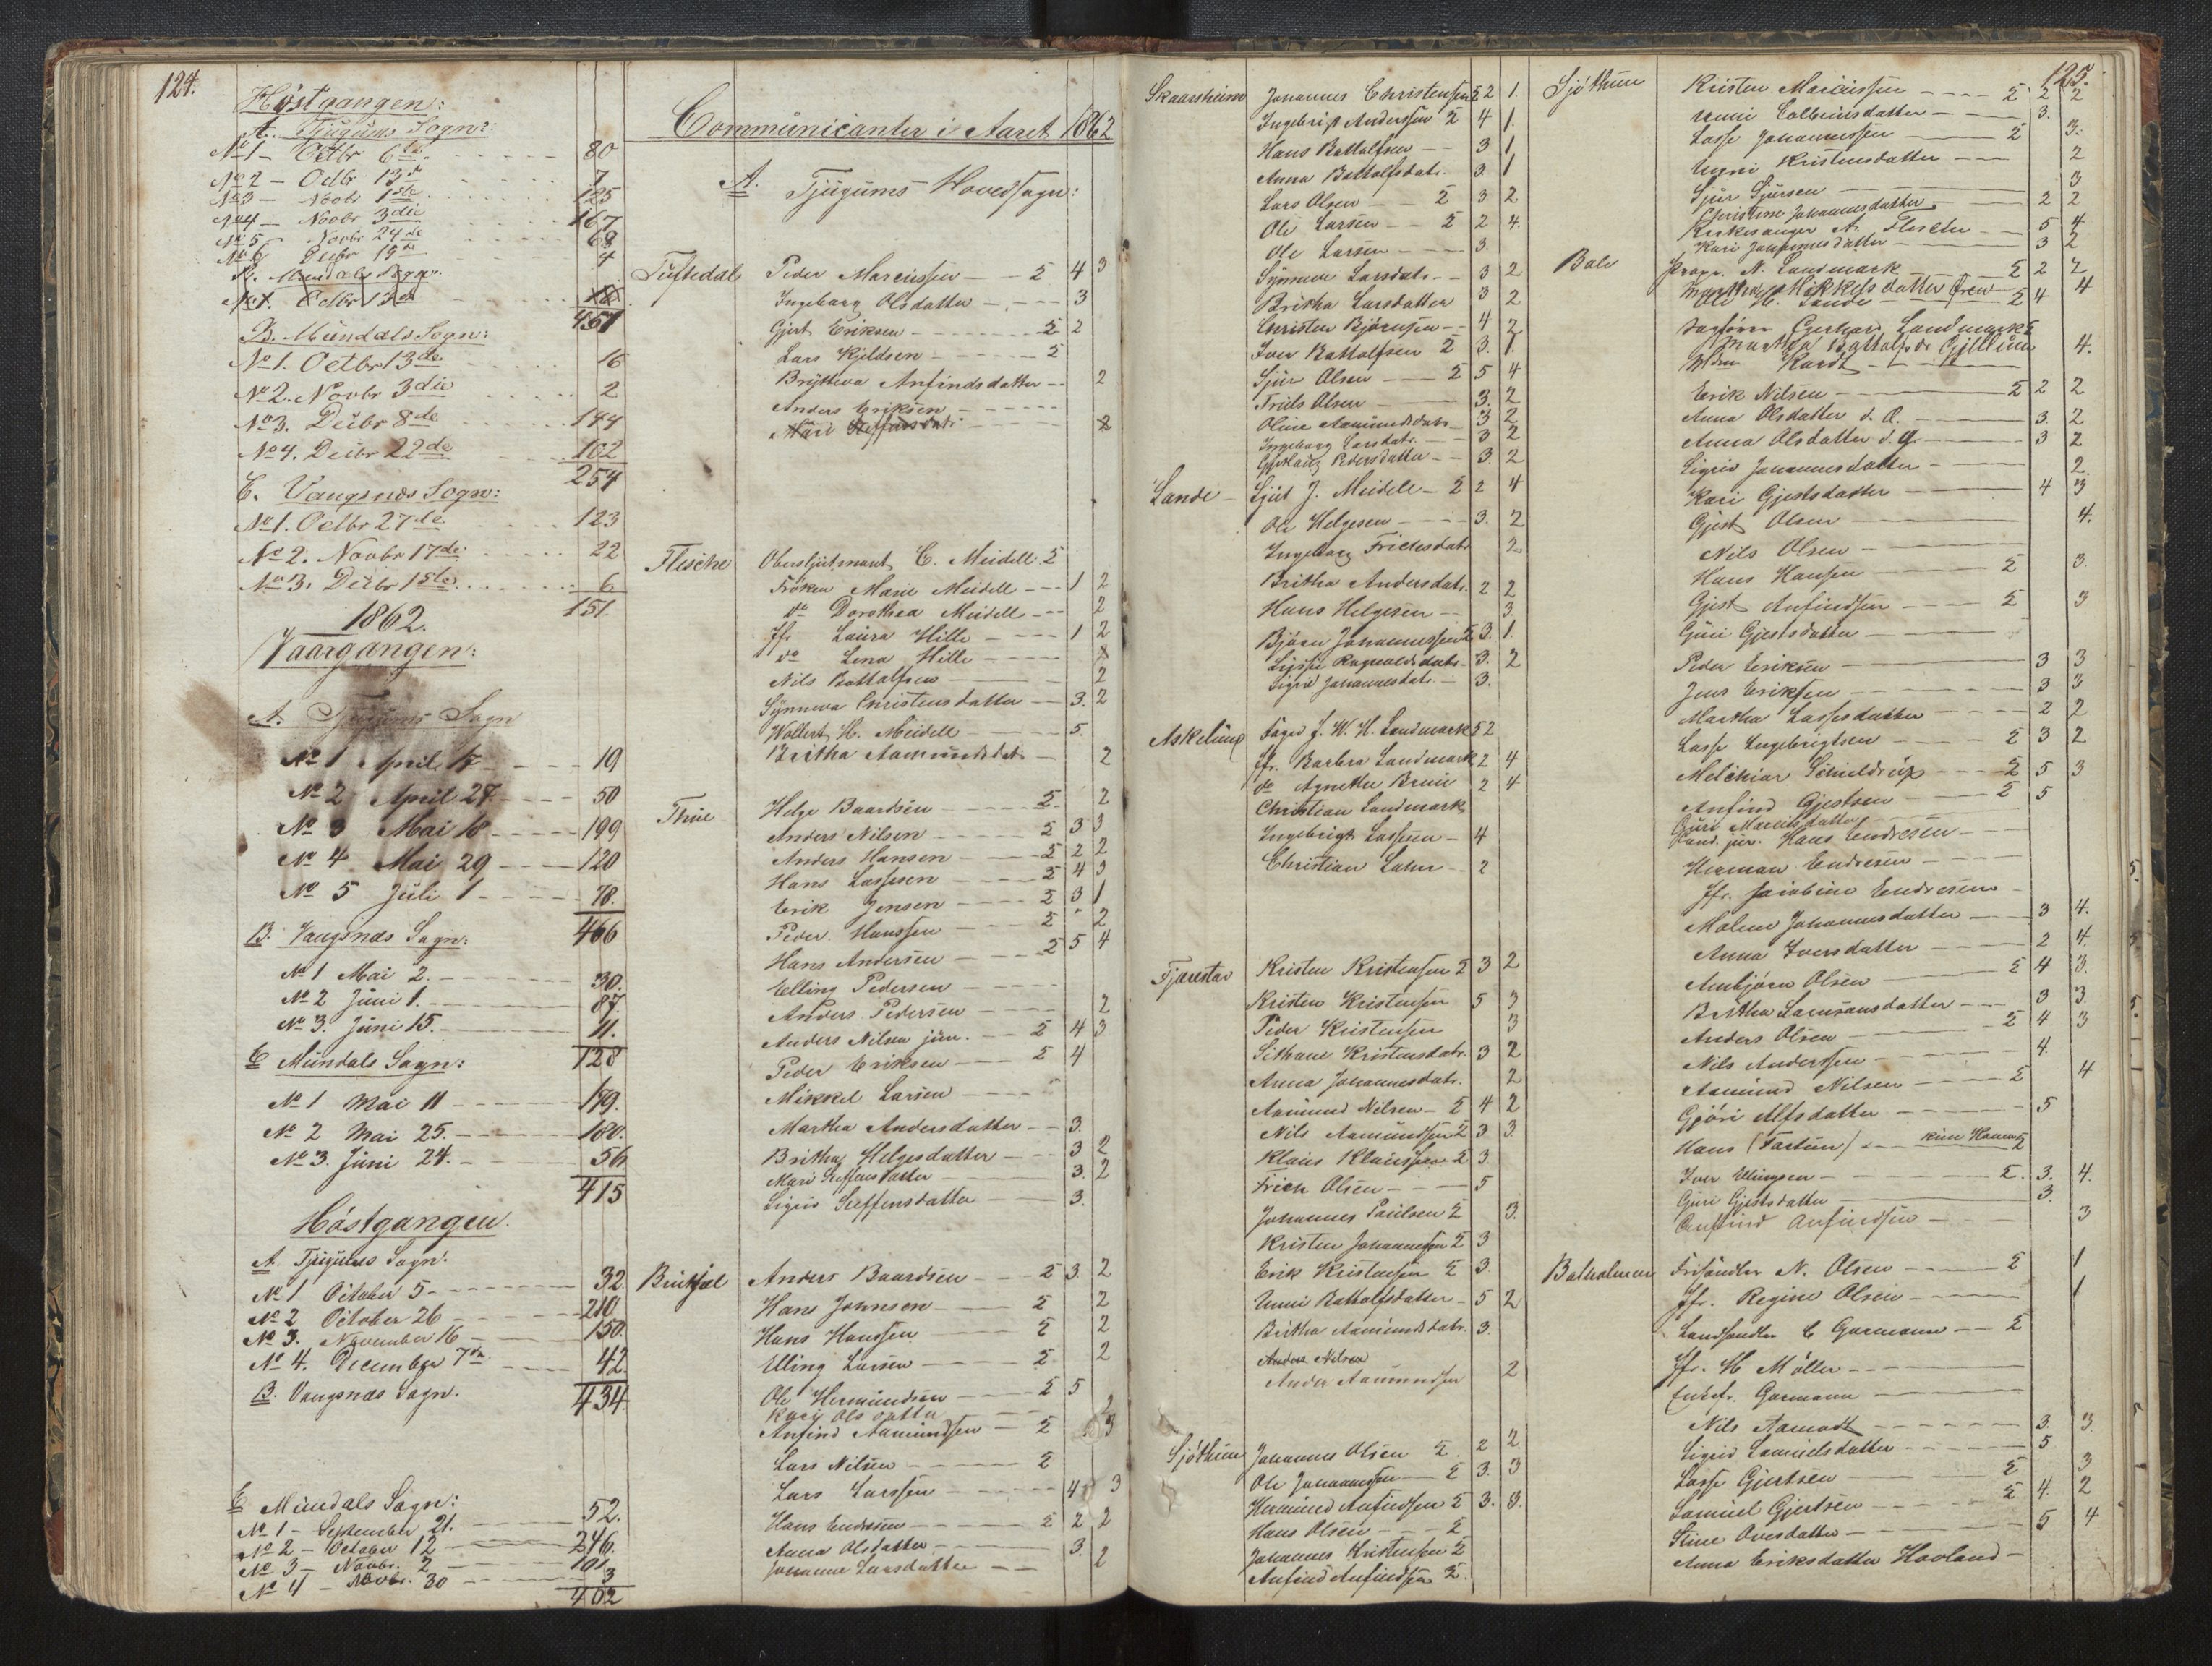 124.
Høstgangen:
A. Tjugums Sogn:
No 1 - Octbr 6te 80
No 2 - Octbr 13de 7
No 3 - Novbr 1ste 125
No 4 - Novbr 3die 167
No 5 Novbr 24de 68
No 6 Decbr 15de 4
B. Mundals Sogn:
No 1. Octbr 13de 16
451
B. Mundals Sogn:
No 1. Octbr 13de 16
No 2. Novbr 3die 2
No 3. Decbr 8de 144
No 4. Decbr 22de 102
254
C. Vangsnæs Sogn:
No 1. Octbr 27de 123
No 2. Novbr 17de 22
No 3. Decbr 1ste 6
151
1862.
Vaargangen:
A. Tjugums Sogn
No 1 April 19
No 2 April 27 50
No 3 Mai 18 199
No 4 Mai 29 120
No 5 Juli 1 78.
466
B. Vangsnæs Sogn:
No 1 Mai 2. 30.
No 2 Juni 1. 87.
No 3. Juni 15. 11.
128
C Mundals Sogn:
No 1 Mai 11 179.
No 2 Mai 25. 180.
No 3. Juni 24. 56
415
Høstgangen.
A. Tjugums Sogn.
No 1 October 5 32
No 2 October 26 210.
No 3. November 16 150.
No 4. December 7de 42
434
B. Vangsnæs Sogn.
C Mundals Sogn:
No 1 - September 21. 52.
No 2 - October 12 246.
No 3 - Novbr. 2 101
No 4 - Novbr. 30 3
402
Communicanter i Aaret 1862
A. Tjugums Hovedsogn:
Tuftedal Peder Marcussen 2 4 3
Ingeborg Olsdatter 3
Gjert Eriksen 2 2
Lars Kjeldsen 2
Brytteva Anfindsdatter 2
Anders Eriksen
Mari Steffensdatr 2
Flesche Oberstljutnant C. Meidell 2
Frøken Marie Meidell 1 2
do Dorothea Meidell 2
Jfr Laura Hille 1 2
do Lena Hille
Nils Bottolfsen 2
Synneva Christensdatter 3. 2
Wollert H. Meidell 5.
Britha Aamundsdatr 2
Thue Helge Baardsen 2. 2
Anders Nilsen 2 3 3
Anders Hansen 2 2 2
Hans Lassesen 2 4 3
Erik Jensen 2 3 1
Peder Hanssen 2 2
Hans Andersen 2 5 4
Elling Pedersen
Anders Pedersen 2
Anders Nilsen jun. 2 4 3
Peder Eriksen 2 4
Mikkel Larsen
Martha Andersdatter 3.
Britha Helgesdatter 3 2
Mari Steffensdatter 3. 2
Sigrid Steffensdatter 3.
Anders Baardsen 2 3. 2
Hans Johnsen 2 2
Hans Hanssen 2 2
Elling Larsen 2 2
Ole Hermundsen 2 5
Kari Olsdatter
Anfind Aamundsen 2 3
Lars Nilsen 2
Lars Larssen 4 3
Hans Endresen 2 2 2
Anna Olsdatter 3.
Johanne Larsdatter 2
Skaarsheim Johannes Christensen 2 2 1.
Ingebrigt Anderssen 2 4 1.
Hans Bottolfsen 3 1
Anna Bottolfsdatr. 3. 1
Lars Olsen 2 3 2
Ole Larsen 2 2 4.
Ole Larsen 3.
Synneva Larsdatr 3 2
Britha Larsdatter 3 2
Christen Bjørnsen 4 2
Iver Bottolfsen 2 3. 1.
Sjur Olsen 2 5 4
Triels Olsen 3. 2
Oline Aamundsdatr 3 2
Ingeborg Larsdatr. 3 2
Pedersdatter 3. 2
Lande J. Meidell 2 2 4
Ole Helgesen 3. 2
Ingeborg Fricksdatr 2
Britha Andersdatr. 2 2
Hans Helgesen 3
Bjørn Johannessen 2 3. 1.
Ragnaldsdatr 3. 2
Sigrid Johannesdatr 3.
Askelund Foged J. W. H. Landmark 5 2
Jfr. Barbra Landmark 2 4
do Agnethe Bruun 2 4
Christian Landmark
Ingebrigt Lassesen 4
Christian Lahn 2
Fjærestad Kristen Kristensen 2 3 2
Kristen Kristensen 5 3
Peder Kristensen 3
Kristensdatr. 3 2
Anna Johannesdatr. 2
Aamund Nilsen 2 4 2
Nils Aamundsen 2 3 3.
Klaus Klaussen 2 3.
Frich Olsen 5
Johannes Paulsen 2 3.
Kristen Johannessen 2 3
Erik Kristensen 2 3.
Unni Bottolfsdatter 5 2
Britha Aamundsdatr. 3.
Anders Nilsen
Anders Aamundsen 2
Sjøthun Johannes Olsen 2. 2 2
Ole Johannessen 2 3. 3
Hermund Anfindsen 2 3. 3.
Hans Olsen 2
Johannes Kristensen 2
Anfind Anfindsen 2.
125.
Sjøthun Kristen Marcussen 2 2 2
Unni Colbeinsdatter 3.
Lasse Johannessen 2 3.
Unni Kristensdatter 2
Sjur Sjursen 3
Christine Johannesdatter 2 2
Kirkesanger A. Flesche 5 4
Kari Johannesdatter 3 2
Bale Propr. N. Landmark 2 2 2
Martha Mikkelsdatter 4
Ole Lande 2 4
Landmark 2
Martha Bottolfsdr 4.
Erik Nilsen 2 2 2
Anna Olsdatter d. æ. 3. 2
Anna Olsdatter d. y. 3 2
Sigrid Johannesdatter 2.
Kari Gjestsdatter 4 3
Gjest Olsen 4.
Nils Olsen
Hans Hansen 2 3.
Gjest Anfindsen 2 3
Guri Gjestsdatter
Peder Eriksen 3 3
Jens Eriksen 3 3
Martha Lassesdatter 2 2
Lasse Ingebrigtsen 2 3 2
Melchior Schieldrup 2 5 3
Anfind Gjestsen 2 5
Guri Marcusdatter
Cand. jur. Hans Endresen
Herman Endresen
Jfr. Jacobine Endresen
Malene Johannesdatter 3 4.
Anna Iversdatter 2 4.
Anbjørn Olsen 2 4 3.
Britha 3 3.
Anders Olsen 2 4 3
Nils Anderssen 4.
Aamund Nilsen 2 4
Gjøri Alfsdatter 5
Hans (Fartun) 2
Iver Ellingsen 2. 3. 4.
Guri Gjestsdatter 3.
Anfind Anfindsen 3
Balholmen N. Olsen 2 1
Jfr. Regine Olsen 1
Landhandler C Garmann 2
Jfr. M Møller
Enkefr. Garmann
Nils Aamodt 3. 3.
Sigrid Samuelsdatter 5
Lasse Gjertsen 2 3
Samuel Gjertsen 2 4. 2
Stine Ovesdatter 5 4
Anna Eriksdatter Hovland